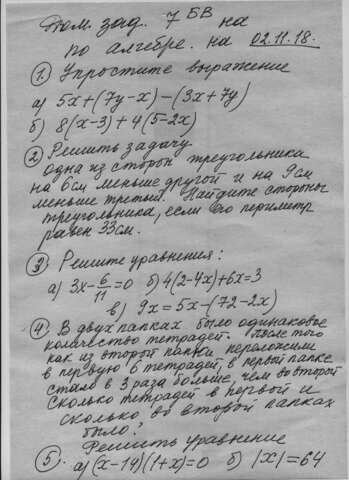 Дом. зад. 7 БВ на
по алгебре. на 02.11.18.
① Упростите выражение
а) 5x+(7y-x)-(3x+7y)
б) 8(x-3)+4(5-2x)
② Решить задачу
одна из сторон треугольника
на 6см меньше другой и на 9см
меньше третьей. Найдите стороны
треугольника, если его периметр
равен 33см.
③ Решите уравнения:
а) 3x-6/11=0 б) 4(2-4x)+6x=3
в) 9x=5x-(72-2x)
④ В двух папках было одинаковое
количество тетрадей. После того
как из второй папки переложили
в первую 6 тетрадей, в первой папке
стало в 3 раза больше, чем во второй
Сколько тетрадей в первой и
сколько во второй папках
было?
Решить уравнение
⑤. а) (x-19)(1+x)=0 б) |x|=64